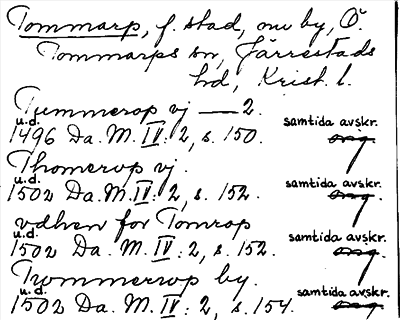 Tommarp, f. stad, nu by, Ö.
Tommarps sn, Järrestads
hd, Krist. l.
Tummerop vj — 2.
u.d. samtida avskr.
1496 Da. M. IV: 2, s. 150. orig
Thomerop vj.
u.d. samtida avskr.
1502 Da. M. IV: 2, s. 152. orig
vdhen for Tomrop
u.d. samtida avskr.
1502 Da. M. IV: 2, s. 152. orig
Trommerop by.
u.d. samtida avskr.
1502 Da. M. IV: 2, s. 154. orig